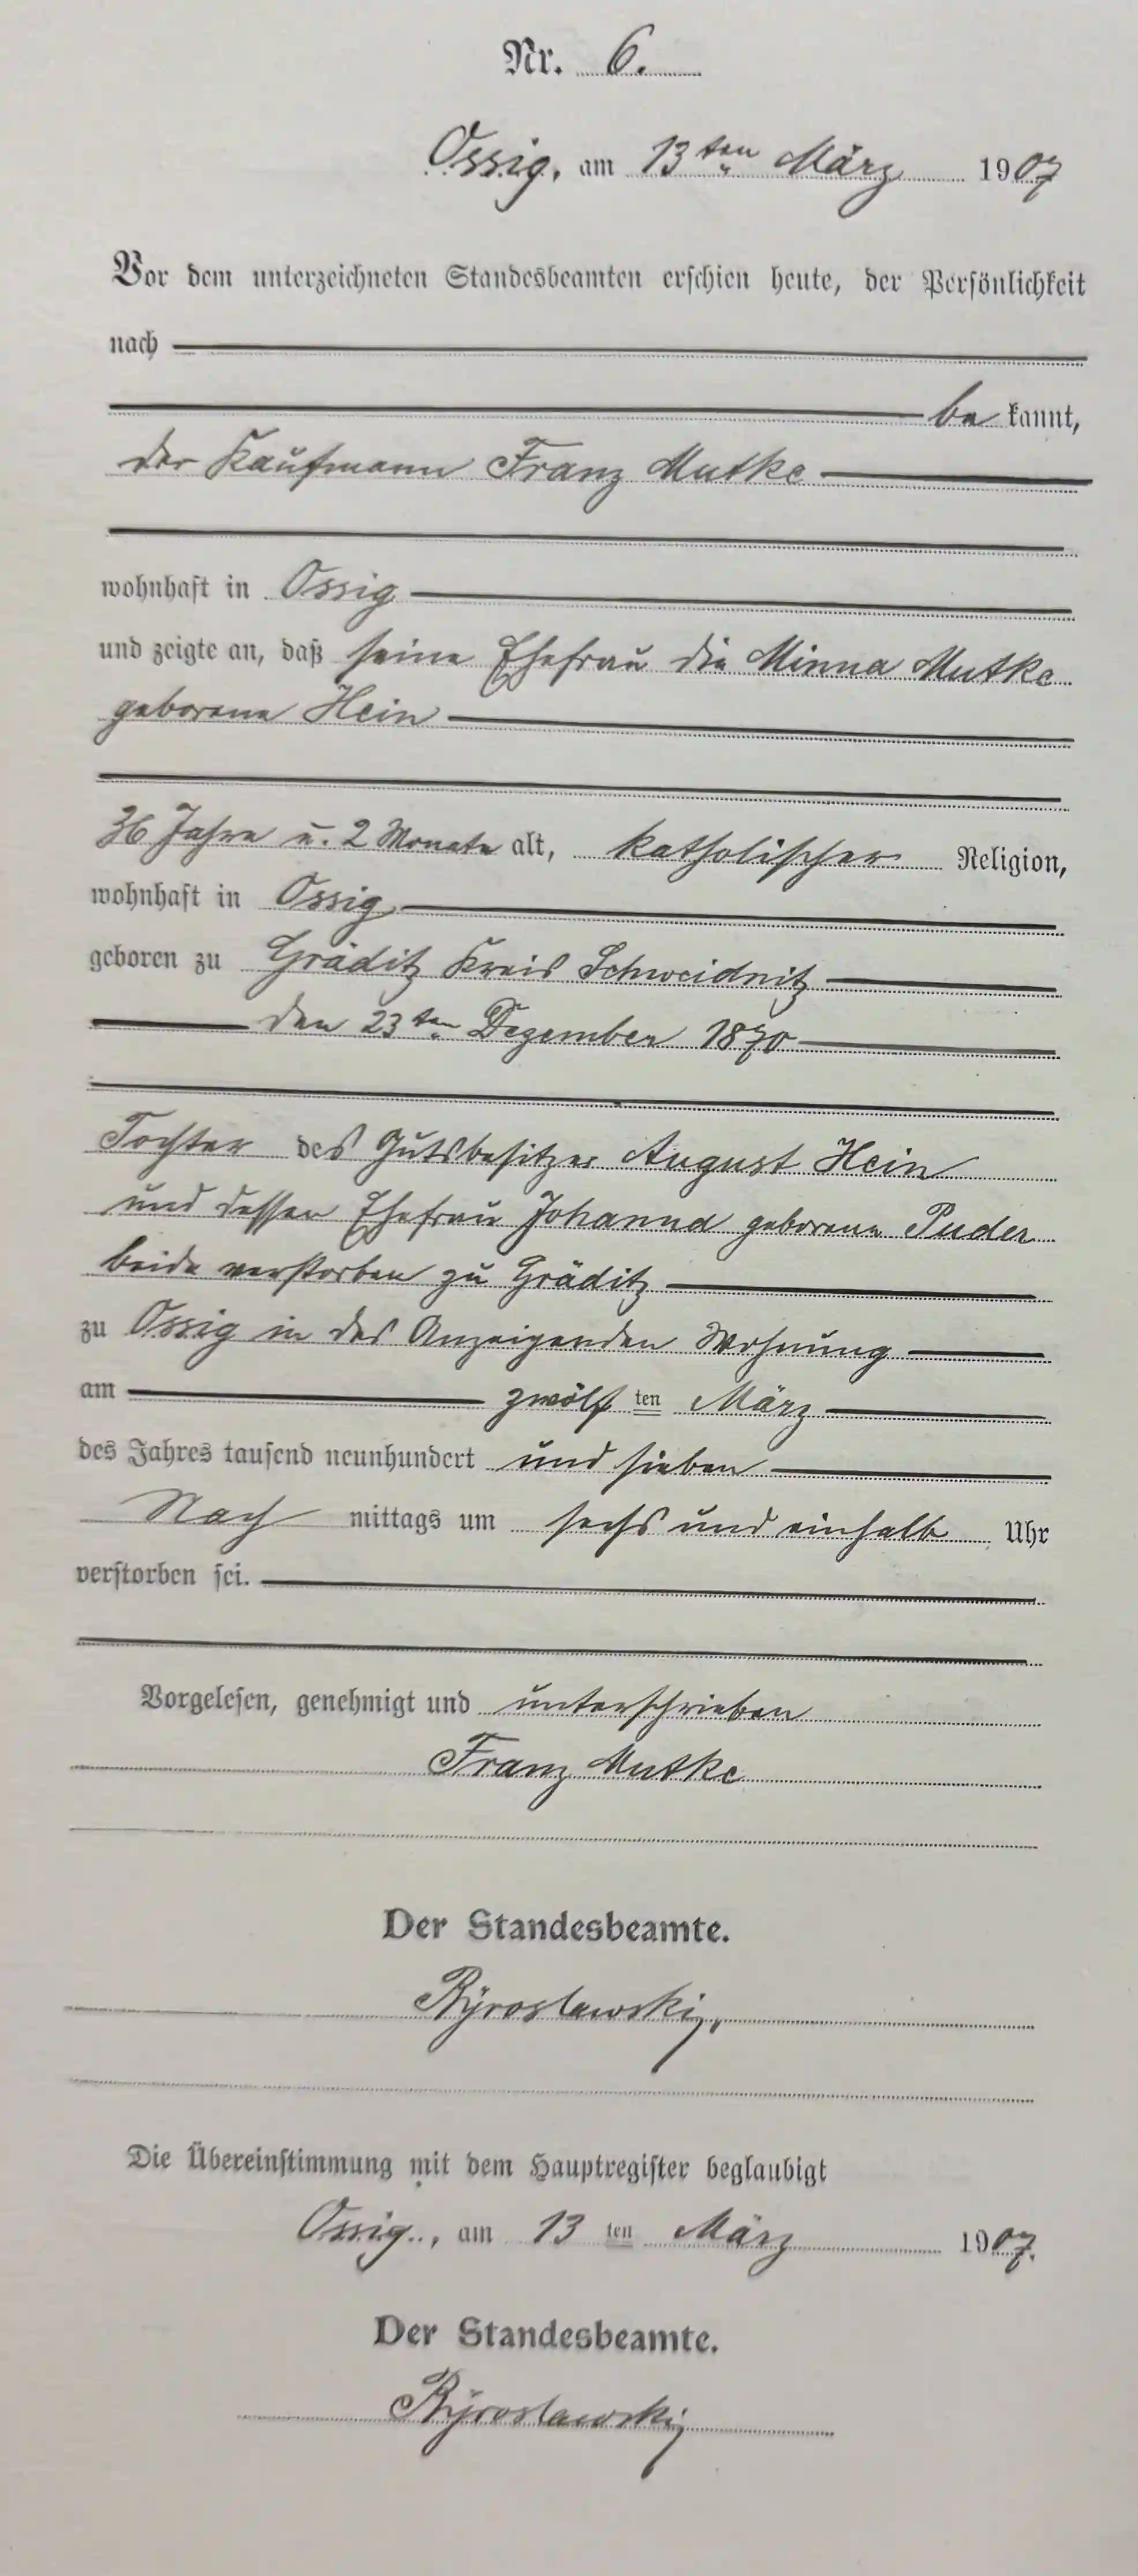 Nr. 6.
Ossig, am 13ten März 1907
Vor dem unterzeichneten Standesbeamten erschien heute, der Persönlichkeit
nach
be kannt,
der Kaufmann Franz Mutke
wohnhaft in Ossig
und zeigte an, daß seine Ehefrau die Minna Mutke
geborene Hein
36 Jahre u. 2 Monate alt, katholischer Religion,
wohnhaft in Ossig
geboren zu Gräditz Kreis Schweidnitz
den 23ten Dezember 1870
Tochter des Gutsbesitzer August Hein
und dessen Ehefrau Johanna geborene Puder
beide verstorben zu Gräditz
zu Ossig in des Anzeigenden Wohnung
am zwölf ten März
des Jahres tausend neunhundert und sieben
Nach mittags um sechs und einhalb Uhr
verstorben sei.
Vorgelesen, genehmigt und unterschrieben
Franz Mutke
Der Standesbeamte.
Die Übereinstimmung mit dem Hauptregister beglaubigt
Ossig, am 13 ten März 1907.
Der Standesbeamte.